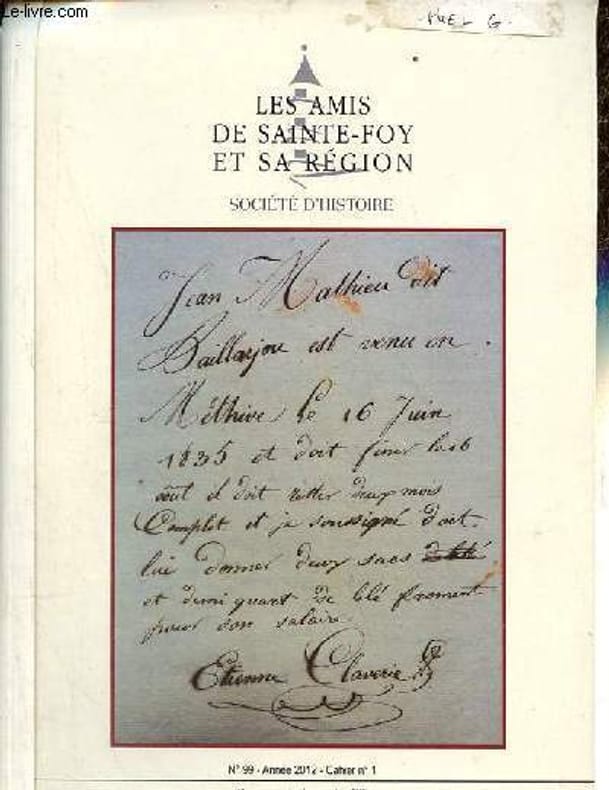 Le-livre.com
LES AMIS
DE SAINTE-FOY
ET SA RÉGION
SOCIÉTÉ D'HISTOIRE
Jean Mathieu dit
Baillarjou est venu en
Méthive le 16 Juin
1835 et doit finir le 16
aout il doit rester deux mois
Complet et je soussigné doit
lui donner deux sacs
et demi quart de blé froment
pour son salaire
Etienne Claverie
N° 99 - Année 2012 - Cahier n° 1